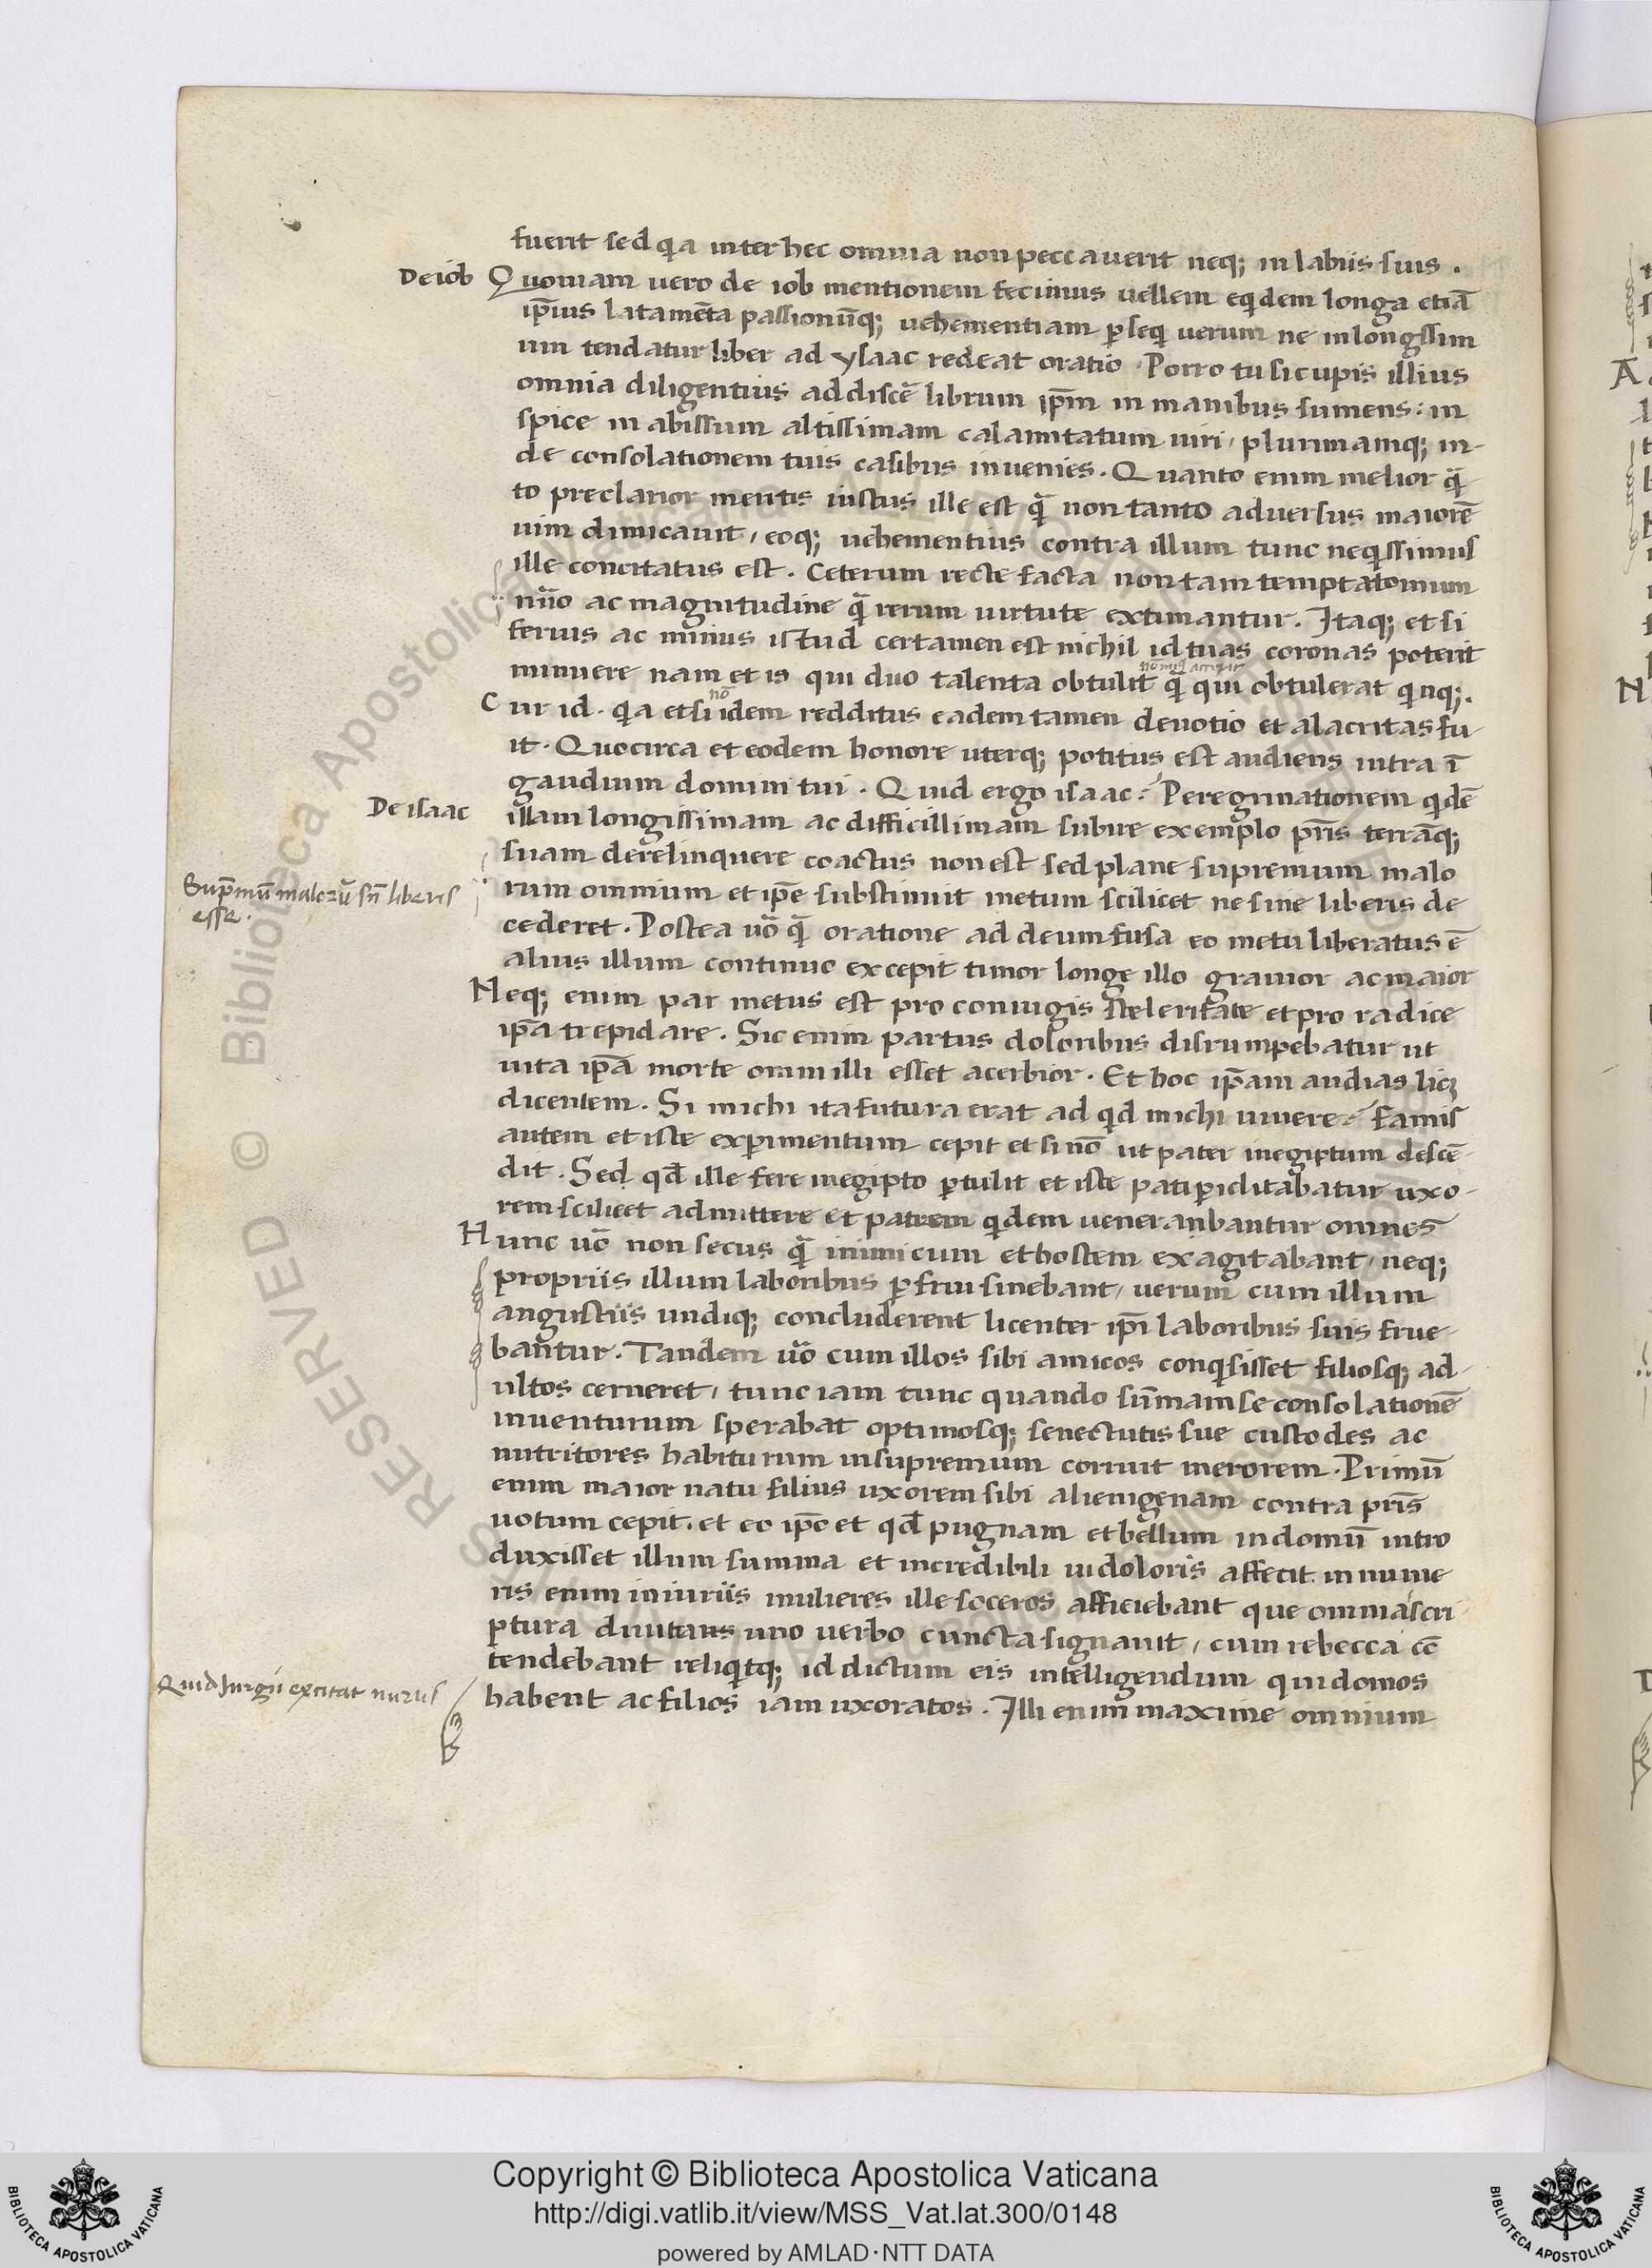 fuerit sed qa inter hec omnia non peccauerit neq; in labiis suis .
De iob
Quoniam uero de iob mentionem fecimus uellem eqdem longa etiā
ip̄ius latamēta passionūq; uehementiam pseq uerum ne in longissim
um tendatur liber ad ysaac redeat oratio . Porro tu si cupis illius
omnia diligentius addiscē librum ip̄m in manibus sumens : in
spice in abissum altissimam calamitatum uiri , plurimamq; in-
de consolationem tuis casibus inuenies . Quanto enim melior q̄
to preclarior meritis iustus ille est q̄ non tanto aduersus maiorē
uim dimicauit , eoq; uehementius contra illum tunc neqssimus
ille concitatus est . Ceterum recte facta non tam temptationum
nūo ac magnitudine q̄ rerum uirtute extimantur . Itaq; et si
ferius ac minus istud certamen est nichil id tuas coronas poterit
minuere nam et is qui duo talenta obtulit q̄ qui obtulerat qnq; .
Cur id . qa etsi nō idem redditus eadem tamen deuotio et alacritas fu-
it . Quocirca et eodem honore uterq; potitus est audiens intra ī
gaudium domini tui . Quid ergo isaac ? Peregrinationem qdē
De isaac
illam longissimam ac difficillimam subire exemplo pr̄is terrāq;
suam derelinquere coactus non est sed plane supremum malo
Sup̄mū malorū sn̄ liberis
esse .
rum omnium et ip̄e substinuit metum scilicet ne sine liberis de
cederet . Postea uō q̄ oratione ad deum fusa eo metu liberatus ē
alius illum continuo excepit timor longe illo grauior ac maior
Neq; enim par metus est pro coniugis steleritate et pro radice
ip̄a trepidare . Sic enim partus doloribus disrumpebatur ut
uita ip̄a morte omni illi esset acerbior . Et hoc ip̄am audias licꝫ
dicentem . Si michi ita futura erat ad qd michi uiuere ? Famis
autem et iste exp̄rimentum cepit et si nō ut pater in egiptum descē-
dit . Sed qd̄ ille fere in egipto ptulit et iste pati piclitabatur uxo-
rem scilicet admittere et patrem qdem uenerabantur omnes
Hunc uō non secus q̄ inimicum et hostem exagitabant , neq;
propriis illum laboribus pfrui sinebant , uerum cum illum
angustiis undiq; concluderent licenter ip̄i laboribus suis frue-
bantur . Tandem uō cum illos sibi amicos conqsisset filiosq; ad-
ultos cerneret , tunc iam tunc quando sūmam se consolationē
inuenturum sperabat optimosq; senectutis sue custodes ac
nutritores habiturum in supremum corruit merorem . Primū
enim maior natu filius uxorem sibi alienigenam contra pr̄is
uotum cepit . et eo ip̄o et qd̄ pugnam et bellum in domū intro
duxisset illum summa et incredibili ui doloris affecit . in nume
ris enim iniuriis mulieres ille soceros afficiebant que omnia scri-
ptura diuitans uno verbo cuncta signauit , cum rebecca cō
tendebant reliqtq; id dictum eis intelligendum qui domos
Quid Jurgii excitat nurus
habent ac filios iam uxoratos . Illi enim maxime omnium
Copyright © Biblioteca Apostolica Vaticana
http://digi.vatlib.it/view/MSS_Vat.lat.300/0148
powered by AMLAD·NTT DATA
BIBLIOTECA APOSTOLICA VATICANA
BIBLIOTECA APOSTOLICA VATICANA